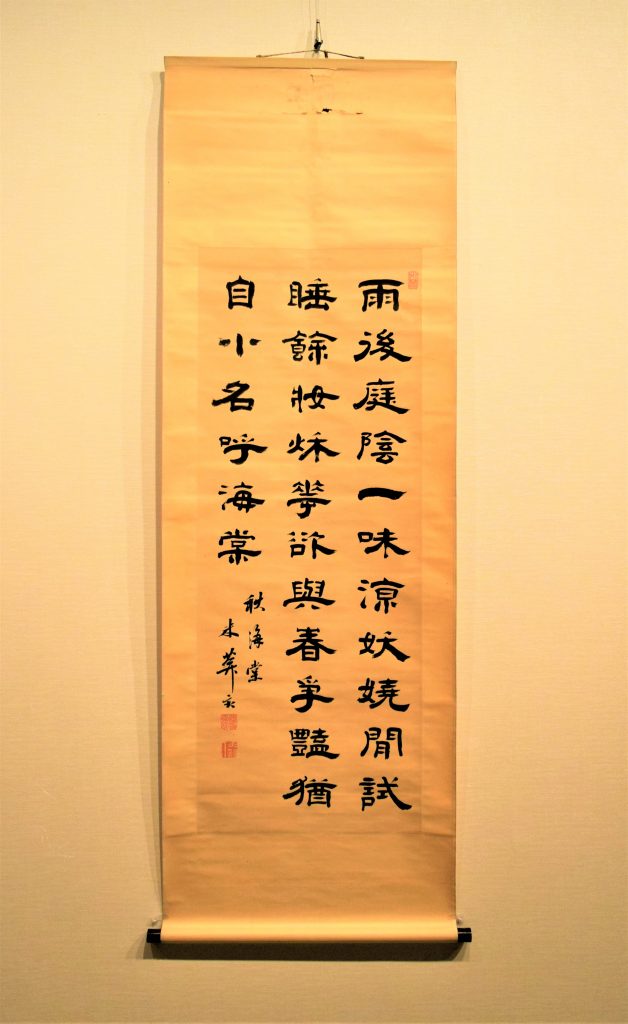 雨後庭陰一味涼妖嬈閒試
睡餘妝秌華欲與春爭豔猶
自小名呼海棠
秋海棠
米葊亥